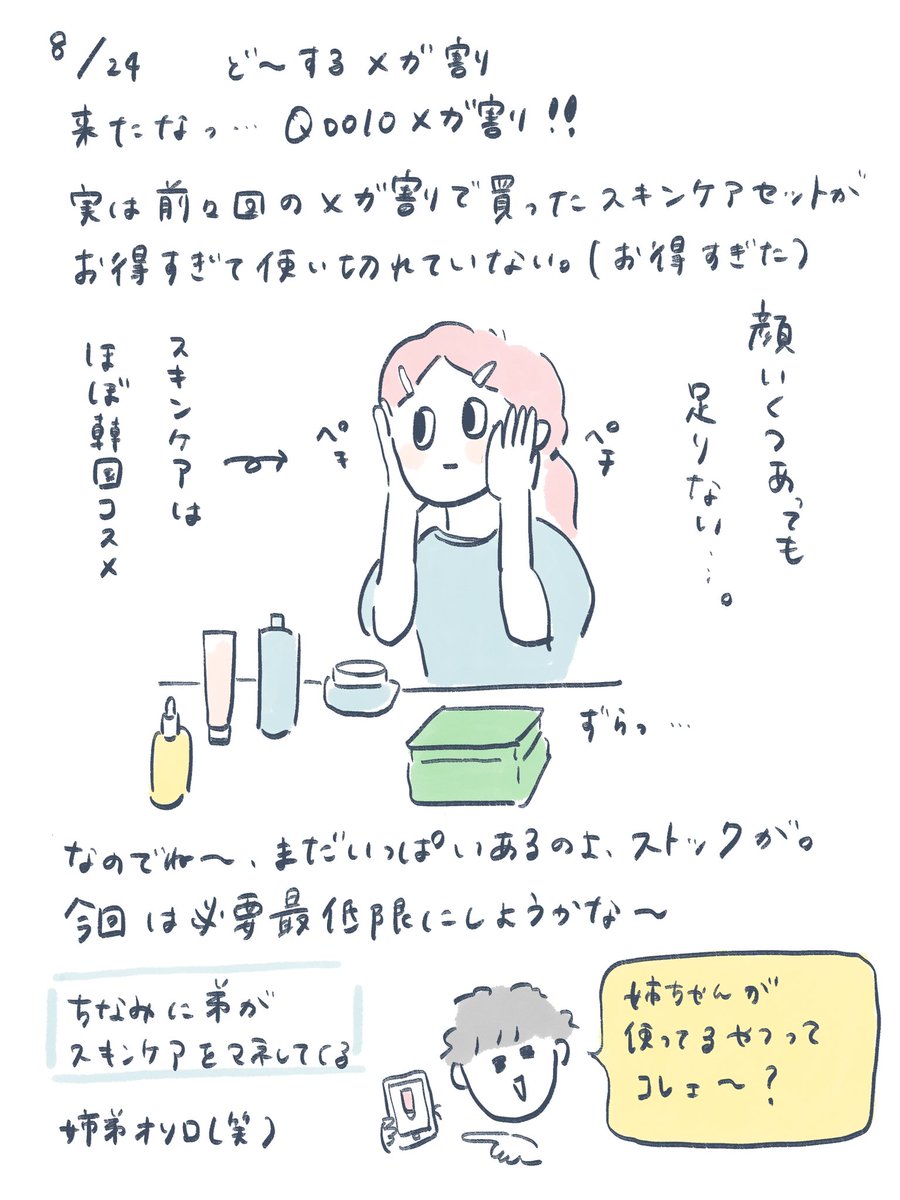 8/24 ど〜するメガ割り
来たなっ… Qoo10メガ割り!!
実は前々回のメガ割りで買ったスキンケアセットが
お得すぎて使い切れていない。(お得すぎた)
顔いくつあっても
足りない…。
スキンケアは
ほぼ韓国コスメ
ペチ
ペチ
ずらっ…
なのでね〜、まだいっぱいあるのよ、ストックが。
今回は必要最低限にしようかな〜
ちなみに弟が
スキンケアをマネしてくる
姉弟オソロ(笑)
姉ちゃんが
使ってるやつって
コレェ〜?